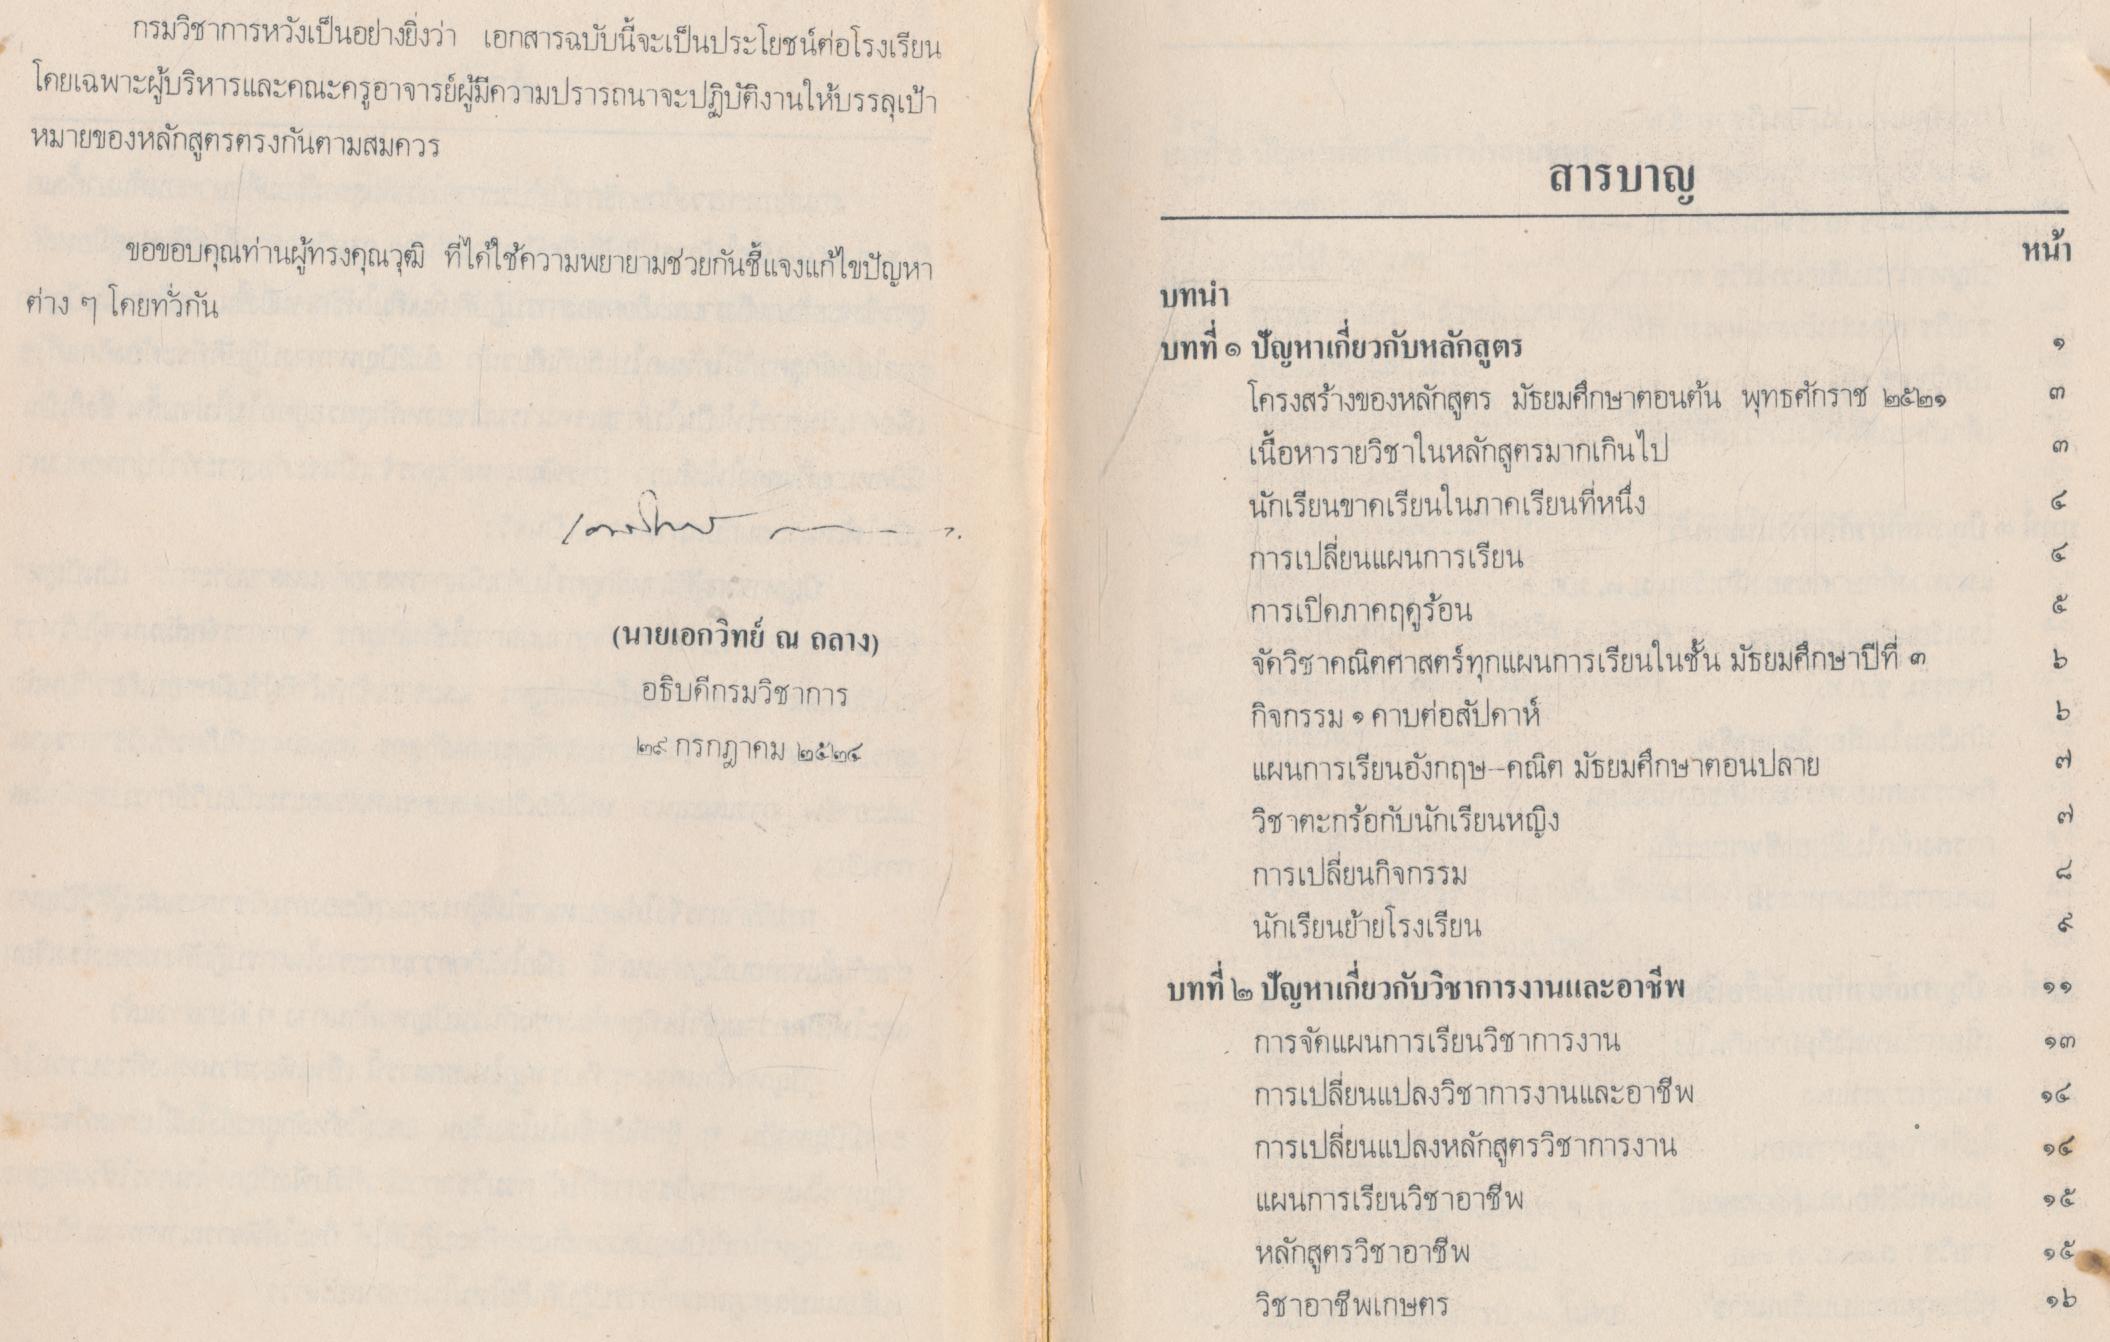 กรมวิชาการหวังเป็นอย่างยิ่งว่า เอกสารฉบับนี้จะเป็นประโยชน์ต่อโรงเรียน
โดยเฉพาะผู้บริหารและคณะครูอาจารย์ผู้มีความปรารถนาจะปฏิบัติงานให้บรรลุเป้า
หมายของหลักสูตรตรงกันตามสมควร
ขอขอบคุณท่านผู้ทรงคุณวุฒิ ที่ได้ใช้ความพยายามช่วยกันชี้แจงแก้ไขปัญหา
ต่าง ๆ โดยทั่วกัน
(นายเอกวิทย์ ณ ถลาง)
อธิบดีกรมวิชาการ
๒๙ กรกฎาคม ๒๕๒๔
สารบาญ
หน้า
บทนำ
บทที่ ๑ ปัญหาเกี่ยวกับหลักสูตร ๑
โครงสร้างของหลักสูตร มัธยมศึกษาตอนต้น พุทธศักราช ๒๕๒๑ ๓
เนื้อหารายวิชาในหลักสูตรมากเกินไป ๓
นักเรียนขาดเรียนในภาคเรียนที่หนึ่ง ๔
การเปลี่ยนแผนการเรียน ๔
การเปิดภาคฤดูร้อน ๕
จัดวิชาคณิตศาสตร์ทุกแผนการเรียนในชั้น มัธยมศึกษาปีที่ ๓ ๖
กิจกรรม ๑ คาบต่อสัปดาห์ ๖
แผนการเรียนอังกฤษ-คณิต มัธยมศึกษาตอนปลาย ๗
วิชาตะกร้อกับนักเรียนหญิง ๗
การเปลี่ยนกิจกรรม ๘
นักเรียนย้ายโรงเรียน ๙
บทที่ ๒ ปัญหาเกี่ยวกับวิชาการงานและอาชีพ ๑๑
การจัดแผนการเรียนวิชาการงาน ๑๓
การเปลี่ยนแปลงวิชาการงานและอาชีพ ๑๔
การเปลี่ยนแปลงหลักสูตรวิชาการงาน ๑๔
แผนการเรียนวิชาอาชีพ ๑๕
หลักสูตรวิชาอาชีพ ๑๕
วิชาอาชีพเกษตร ๑๖